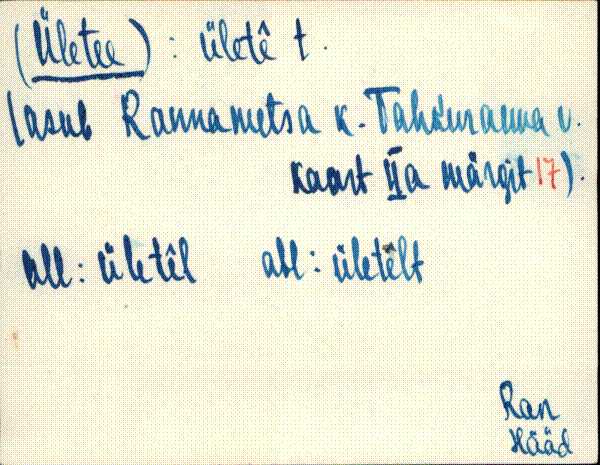 (Ületee) : ületê t.
(asub Rannametsa k. Tahkuranna v.
kaart IIa märgit 17).
all: ületêl abl: ületêlt
Ran
Hääd